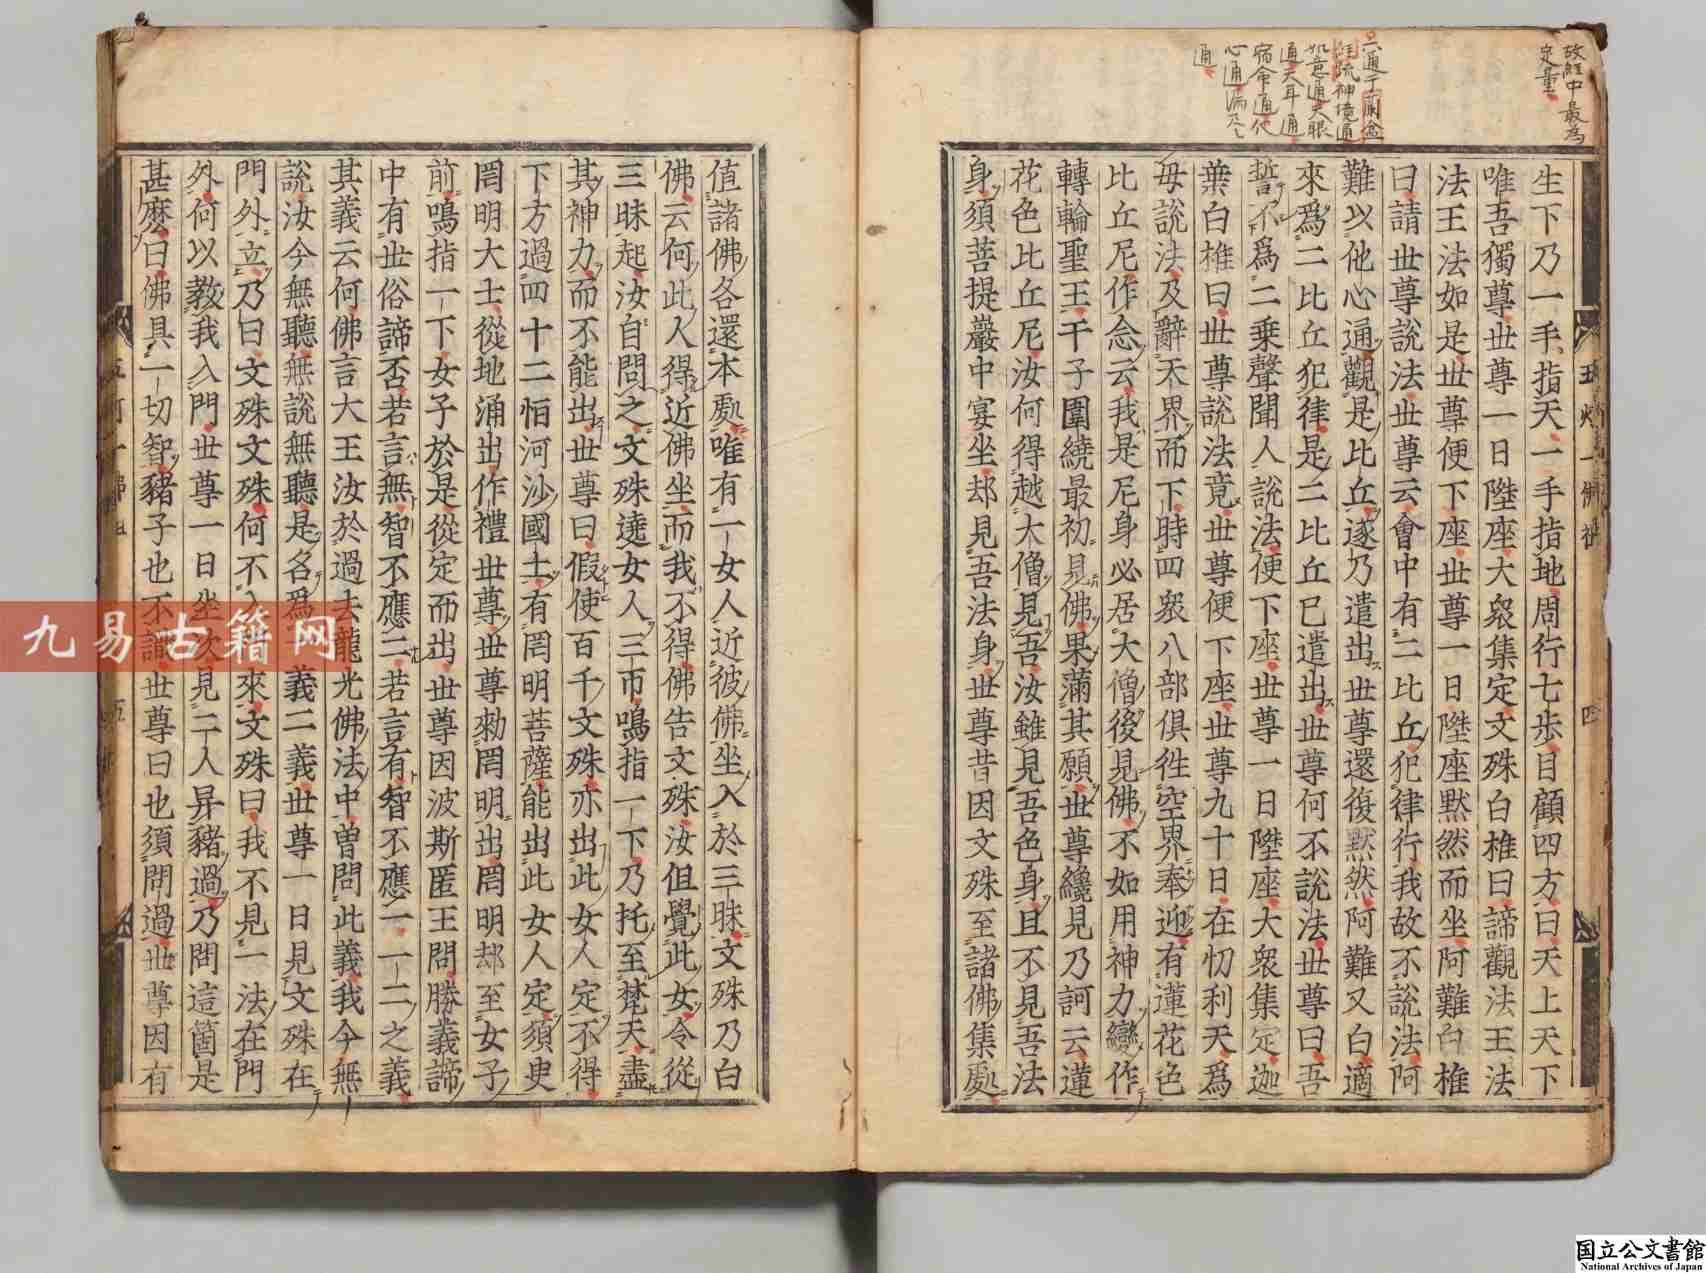 故經中最為
定量
六通于蘭盆
經疏神境通
如意通天眼
通天耳通
宿命通他
心通漏尽
通
生下乃一手指天一手指地周行七步目顧四方曰天上天下
唯吾獨尊世尊一日陞座大衆集定文殊白椎曰諦觀法王法
法王法如是世尊便下座世尊一日陞座默然而坐阿難白椎
曰請世尊說法世尊云會中有二比丘犯律行我故不說法阿
難以他心通觀是比丘遂乃遣出世尊還復默然阿難又白適
來爲二比丘犯律是二比丘已遣出世尊何不說法世尊曰吾
誓不爲二乗聲聞人說法便下座世尊一日陞座大衆集定迦
葉白椎曰世尊說法竟世尊便下座世尊九十日在忉利天爲
母說法及辭天界而下時四衆八部俱徃空界奉迎有蓮花色
比丘尼作念云我是尼身必居大僧後見佛不如用神力變作
轉輪聖王千子圍繞最初見佛果滿其願世尊纔見乃訶云蓮
花色比丘尼汝何得越大僧見吾汝雖見吾色身且不見吾法
身須菩提巖中宴坐却見吾法身世尊昔因文殊至諸佛集處
值諸佛各還本處唯有一女人近彼佛坐入於三昧文殊乃白
佛云何此人得近佛坐而我不得佛告文殊汝但覺此女令從
三昧起汝自問之文殊遶女人三帀鳴指一下乃托至梵天盡
其神力而不能出世尊曰假使百千文殊亦出此女人定不得
下方過四十二恒河沙國土有罔明菩薩能出此女人定須臾
罔明大士從地涌出作禮世尊世尊勑罔明出罔明却至女子
前鳴指一下女子於是從定而出世尊因波斯匿王問勝義諦
中有世俗諦否若言無智不應二若言有智不應一一二之義
其義云何佛言大王汝於過去龍光佛法中曽問此義我今無
說汝今無聽無說無聽是名爲一義二義世尊一日見文殊在
門外立乃曰文殊文殊何不入門來文殊曰我不見一法在門
外何以教我入門世尊一日坐次見二人舁豬過乃問這箇是
甚麽曰佛具一切智豬子也不識世尊曰也須問過世尊因有
五灯一佛祖
四
五
九易古籍网
国立公文書館
National Archives of Japan